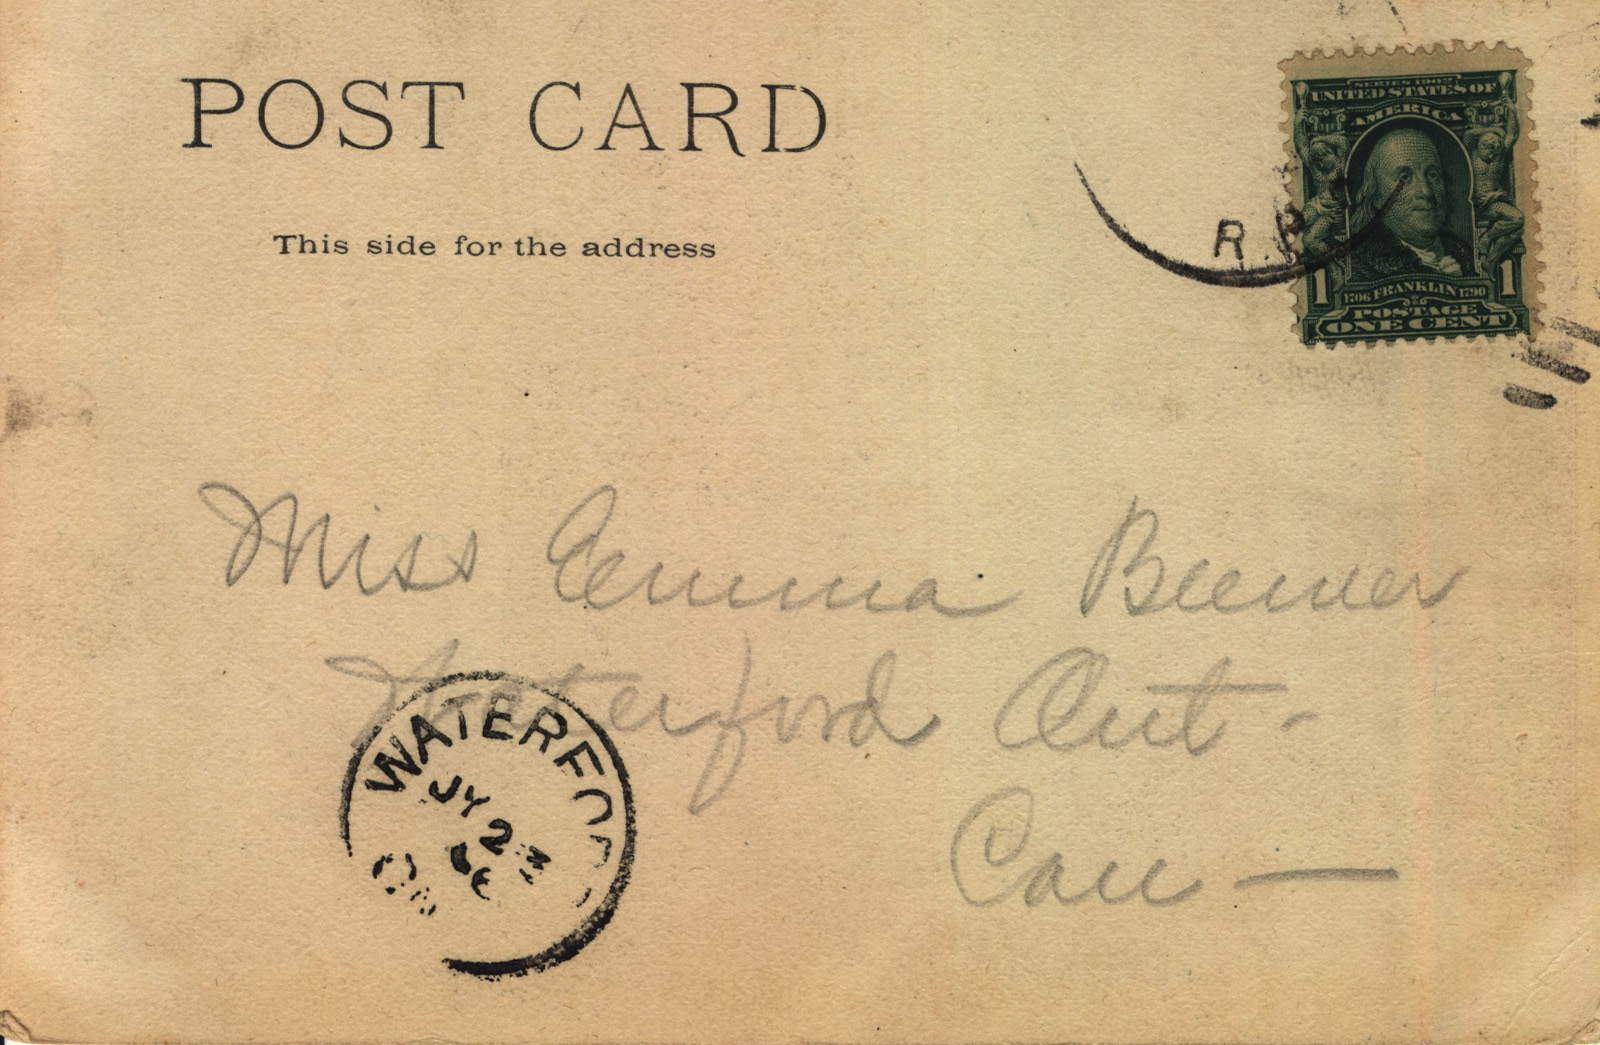 POST CARD
This side for the address
SERIES 1902
UNITED STATES OF
AMERICA
1 1706 FRANKLIN 1790 1
POSTAGE
ONE CENT
R.P.
Miss Emma Beemer
Waterford Ont -
Can —
WATERFO
JY 23
06
ON